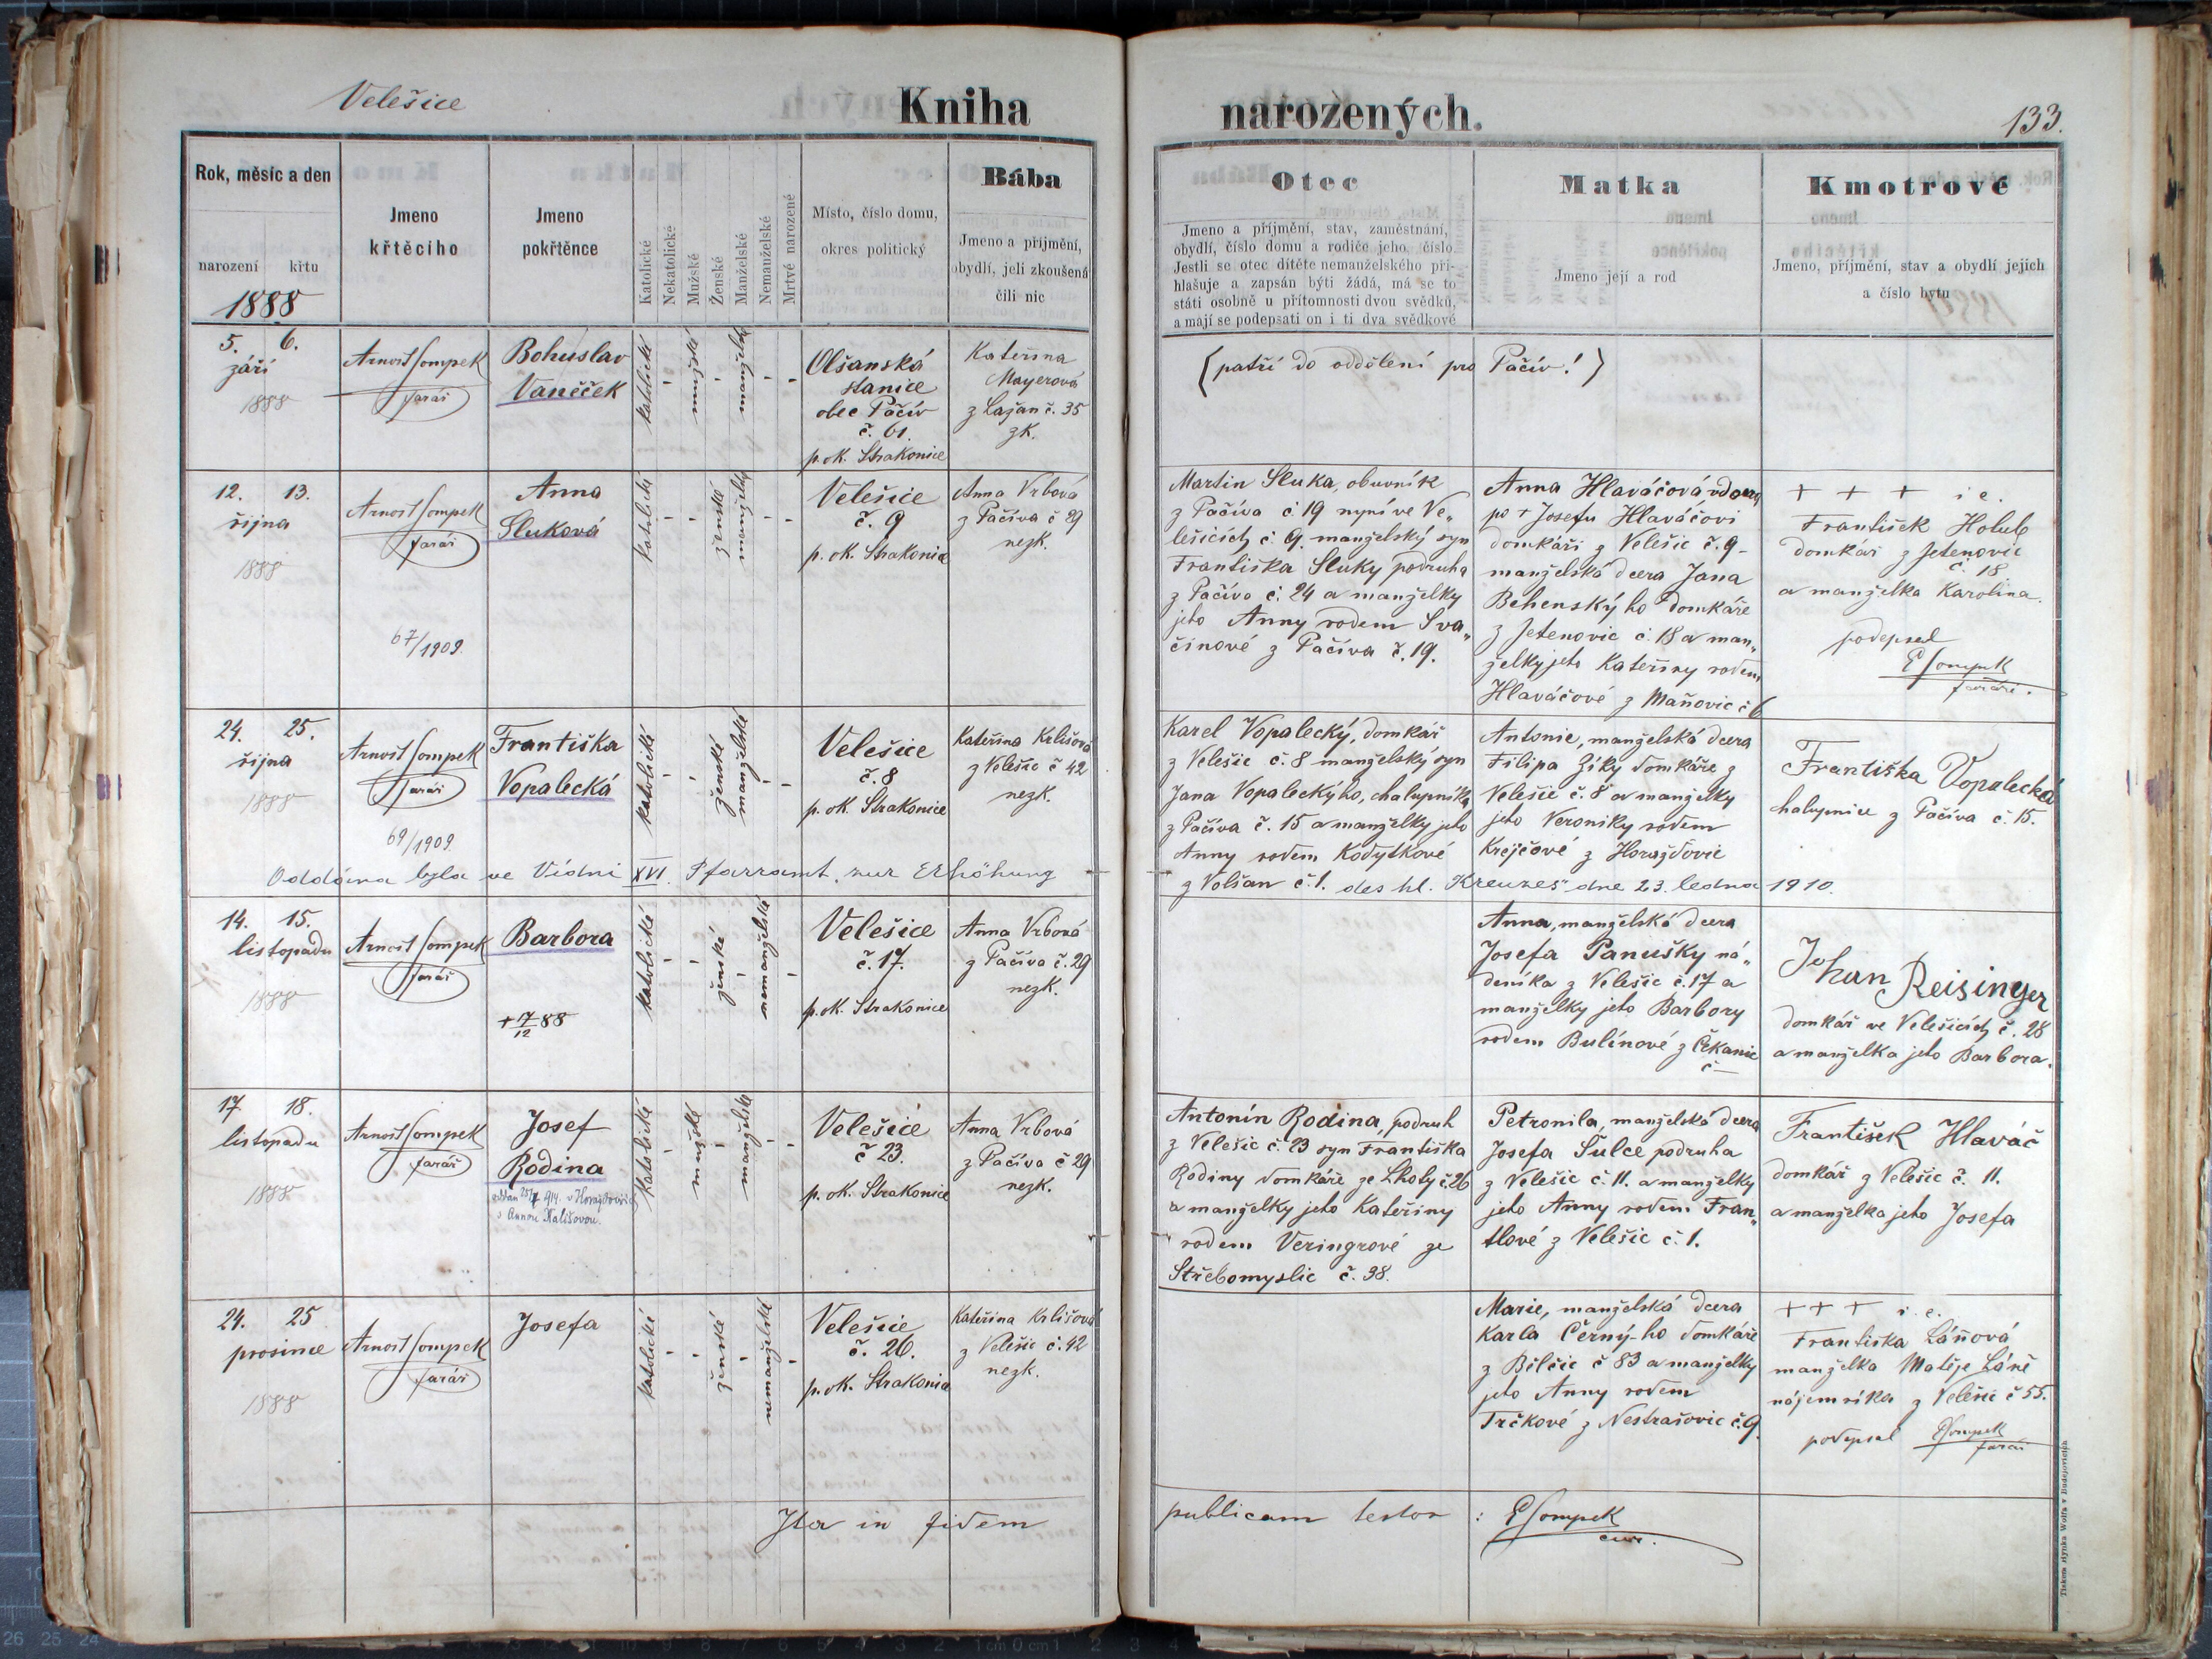 Velešice
Kniha
narozených.
133.
Rok, měsíc a den
narození křtu
1888
Jmeno
křtěcího
Jmeno
pokřtěnce
Katolické
Nekatolické
Mužské
Ženské
Manželské
Nemanželské
Mrtvě narozené
Místo, číslo domu,
okres politický
Bába
Jmeno a příjmění,
obydlí, jeli zkoušená
čili nic
Otec
Jmeno a příjmění, stav, zaměstnání,
obydlí, číslo domu a rodiče jeho, číslo.
Jestli se otec dítěte nemanželského při-
hlašuje a zapsán býti žádá, má se to
státi osobně u přítomnosti dvou svědků,
a mají se podepsati on i ti dva svědkové
Matka
Jmeno její a rod
Kmotrové
Jmeno, příjmění, stav a obydlí jejich
a číslo bytu
5. 6.
září
1888
Arnošt Sompek
farář
Bohuslav
Vaněček
katolické
-
mužské
-
manželské
-
-
Olšanská
stanice
obec Pačiv
č. 61.
p. ok. Strakonice
Kateřina
Mayerová
z Lažan č. 35
zk.
(patří do oddělení pro Pačív!)
12. 13.
října
1888
67/1909.
Arnošt Sompek
farář
Anna
Sluková
katolické
-
-
ženské
manželské
-
-
Velešice
č. 9
p. ok. Strakonice
Anna Vrbová
z Pačíva č 29
nezk.
Martin Sluka, obuvník
z Pačíva č 19 nyní ve Ve„
lešicích č. 9. manželský syn
Františka Sluky podruha
z Pačíva č. 24 a manželky
jeho Anny rodem Sva„
činové z Pačíva č. 19.
Anna Hlaváčová vdova
po + Josefu Hlaváčovi
domkáři z Velešic č. 9 -
manželská dcera Jana
Behenského domkáře
z Jetenovic č. 18 a man„
želky jeho Kateřiny rodem
Hlaváčové z Maňovic č 6
+ + + i e.
František Holub
domkář z Jetenovic
č. 18
a manželka Karolina.
podepsal
ESompek
farář.
24. 25.
října
1888
69/1909.
Arnošt Sompek
farář
Františka
Vopalecká
katolické
-
-
ženské
manželské
-
-
Velešice
č. 8
p. ok. Strakonice
Kateřina Krlišová
z Velešic č 42
nezk.
Karel Vopalecký, domkář
z Velešic č. 8 manželský syn
Jana Vopaleckýho, chalupníka
z Pačíva č. 15 a manželky jeho
Anny rodem Kodytkové
z Volšan č. 1.
Antonie, manželská dcera
Filipa Ziky domkáře z
Velešic č. 8 a manželky
jeho Veroniky rodem
Krejčové z Horažďovic
Františka Vopalecká
chalupnice z Pačíva č. 15.
Oddána byla ve Vídni XVI. Pfarramt „zur Erhöhung
des hl. Kreuzes" dne 23. ledna 1910.
14. 15.
listopadu
1888
Arnošt Sompek
farář
Barbora
+ 7/12 88
katolické
-
-
ženské
-
nemanželské
-
Velešice
č. 17.
p. ok. Strakonice
Anna Vrbová
z Pačíva č. 29
nezk.
Anna, manželská dcera
Josefa Panušky ná„
deníka z Velešic č. 17 a
manželky jeho Barbory
rodem Bulínové z Čekanic
č -
Johan Reisinger
domkář ve Velešicích č. 28
a manželka jeho Barbora.
17. 18.
listopadu
1888
Arnošt Sompek
farář
Josef
Rodina
oddán 25/7 1914. v Horažďovicích
s Annou Kališovou.
katolické
-
mužské
-
manželské
-
-
Velešice
č 23.
p. ok. Strakonice
Anna Vrbová
z Pačíva č 29
nezk.
Antonín Rodina, podruh
z Velešic č. 23 syn Františka
Rodiny domkáře ze Lhoty č. 26
a manželky jeho Kateřiny
rodem Veringrové ze
Střebomyslic č. 38.
Petronila, manželská dcera
Josefa Šulce podruha
z Velešic č. 11. a manželky
jeho Anny rodem Fran„
tlové z Velešic č. 1.
František Hlaváč
domkář z Velešic č. 11.
a manželka jeho Josefa
24. 25
prosince
1888
Arnošt Sompek
farář
Josefa
katolické
-
-
ženské
-
nemanželské
-
Velešice
č. 26.
p. ok. Strakonice
Kateřina Krlišová
z Velešic č. 42
nezk.
Marie, manželská dcera
Karla Černý-ho domkáře
z Bělčic č 83 a manželky
jeho Anny rodem
Trčkové z Nestrašovic č. 9.
+ + + i. e.
Františka Láňová
manželka Matěje Láně
nájemníka z Velešic č 55.
podepsal ESompek
farář
Ita in fidem
publicam testor : ESompek
cur.
Tiskem slynka Wolfa v Budějovicích